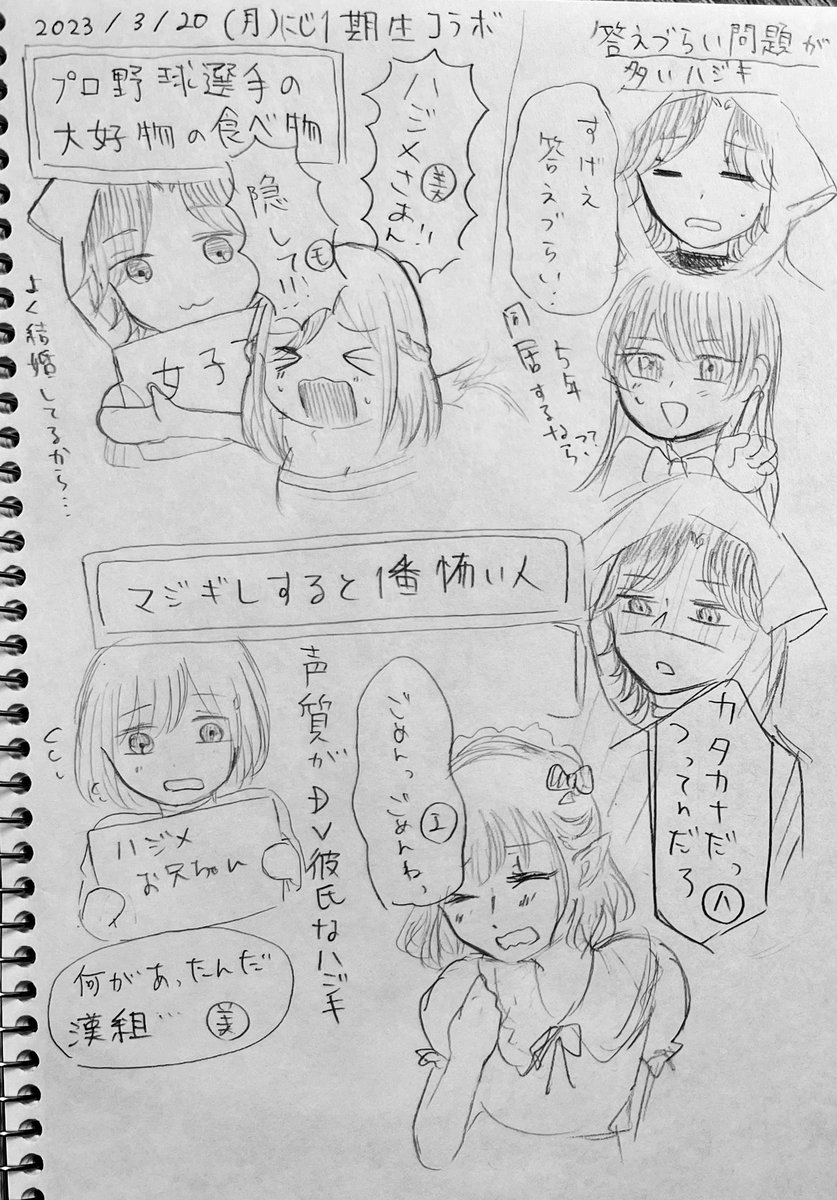 2023/3/20(月)にじ1期生コラボ
プロ野球選手の
大好物の食べ物
ハジメさあん!!
美
隠して!!!
モ
女子
よく結婚してるから…
答えづらい問題が
多いハジキ
すげえ
答えづらい…
5年
同居するなら、って
マジギレすると1番怖い人
カタカナだっ
つってんだろ
ハ
声質がDV彼氏なハジキ
ごめんっごめんね、
エ
ハジメ
お兄ちゃん
何があったんだ
漢組…
美